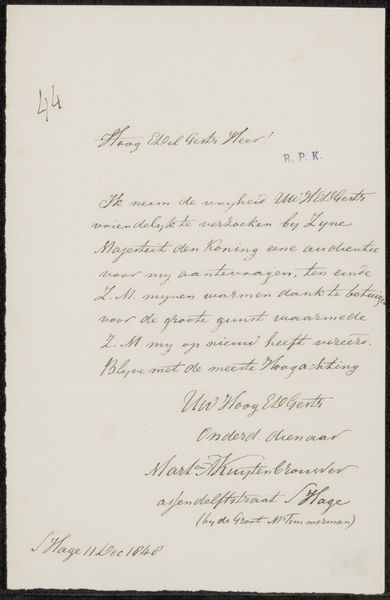 44
Hoog Edel Gestr Heer!
R. P. K.
Ik neem de vryheid Uw HEdGestr
vriendelyk te verzoeken by Zyne
Majesteit den Koning eene audientie
voor my aantevragen, ten einde
Z. M. mynen warmen dank te betuigen
voor de groote gunst waarmede
Z. M my op nieuw heeft vereerd.
Blyve met de meeste Hoogachting
Uw Hoog Ed Gestr
Onderd. dienaar
Martn A Kuytenbrouwer
assendelftstraat S Hage
(by de Groot Mr Timmerman)
S Hage 11 Dec 1848